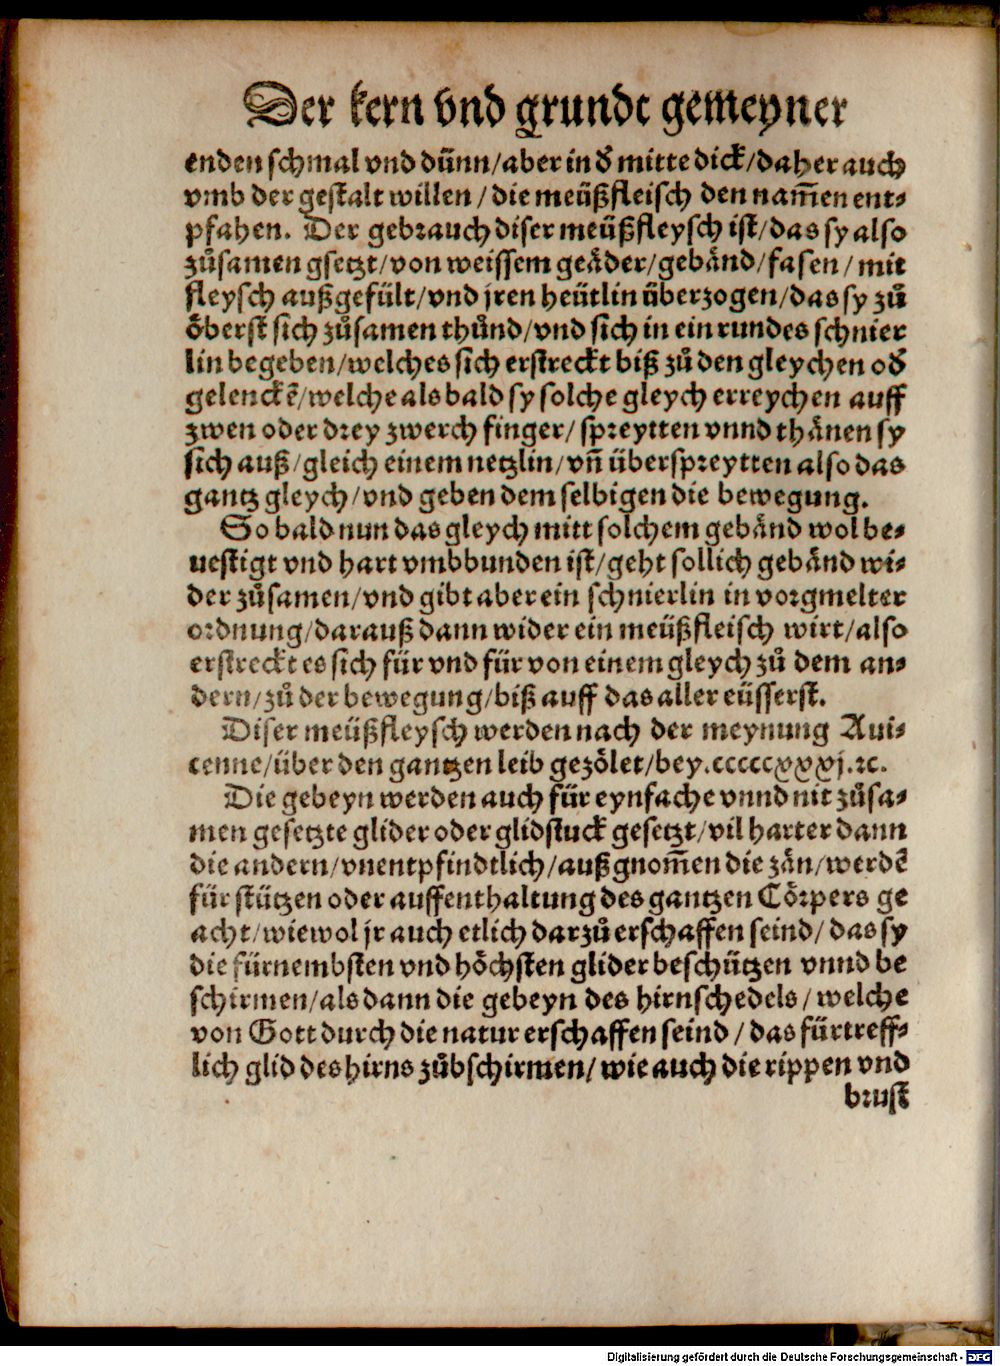 Der kern vnd grundt gemeyner
enden schmal vnd dünn/aber in dˀ mitte dick/daher auch
vmb der gestalt willen/die meüßfleisch den nam̄en ent⸗
pfahen. Der gebrauch diser meüßfleysch ist/das sy also
zůsamen gsetzt/von weissem geäder/gebänd/fasen/mit
fleysch außgefült/vnd jren heütlin überzogen/das sy zů
öberst sich zůsamen thůnd/vnd sich in ein rundes schnier
lin begeben/welches sich erstreckt biß zů den gleychen odˀ
gelenckē/welche als bald sy solche gleych erreychen auff
zwen oder drey zwerch finger/spreytten vnnd thänen sy
sich auß/gleich einem netzlin/vn̄ überspreytten also das
gantz gleych/vnd geben dem selbigen die bewegung.
So bald nun das gleych mitt solchem gebänd wol be⸗
uestigt vnd hart vmbbunden ist/geht sollich gebänd wi⸗
der zůsamen/vnd gibt aber ein schnierlin in vorgmelter
ordnung/darauß dann wider ein meüßfleisch wirt/also
erstreckt es sich für vnd für von einem gleych zů dem an⸗
dern/zů der bewegung/biß auff das aller eüsserst.
Diser meüßfleysch werden nach der meynung Aui⸗
cenne/über den gantzen leib gezölet/bey.cccccxxxj.ꝛc.
Die gebeyn werden auch für eynfache vnnd nit zůsa⸗
men gesetzte glider oder glidstuck gesetzt/vil harter dann
die andern/vnentpfindtlich/außgnom̄en die zän/werdē
für stützen oder auffenthaltung des gantzen Cörpers ge
acht/wiewol jr auch etlich darzů erschaffen seind/das sy
die fürnembsten vnd höchsten glider beschützen vnnd be
schirmen/als dann die gebeyn des hirnschedels/welche
von Gott durch die natur erschaffen seind/das fürtreff⸗
lich glid des hirns zůbschirmen/wie auch die rippen vnd
brust
Digitalisierung gefördert durch die Deutsche Forschungsgemeinschaft - DFG